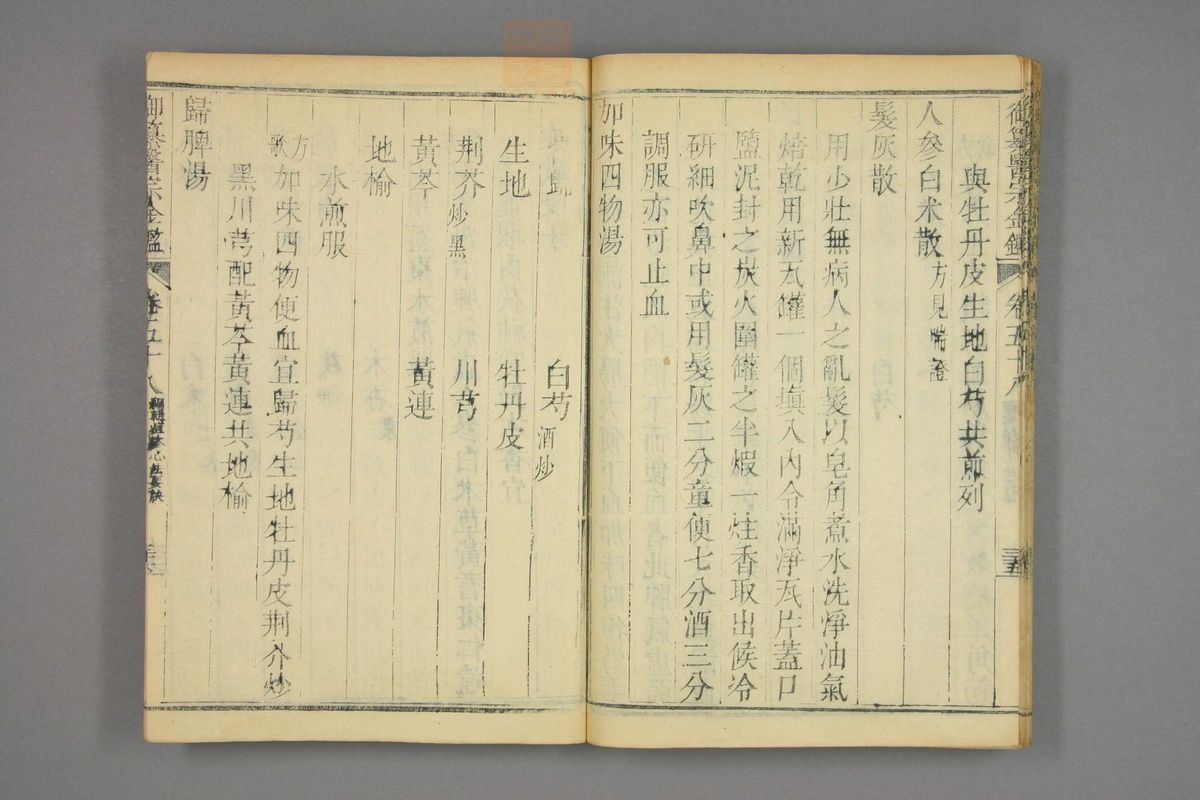 御纂醫宗金鑑 卷五十八
與牡丹皮生地白芍共煎列
人參白朮散 方見喘證
髮灰散
用少壯無病人之亂髮以皂角煮水洗淨油氣
焙乾用新瓦罐一個填入內令滿淨瓦片蓋口
鹽泥封之炭火圍罐之半煆一炷香取出候冷
研細吹鼻中或用髮灰二分童便七分酒三分
調服亦可止血
加味四物湯
歸 白芍酒炒
生地 牡丹皮
荆芥炒黑 川芎
黃芩 黃連
地榆
水煎服
方歌 加味四物便血宜歸芍生地牡丹皮荆芥炒
黑川芎配黃芩黃連共地榆
歸脾湯
御纂醫宗金鑑 卷五十八 心法要訣